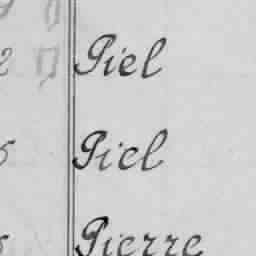 2 Piel
5 Piel
Pierre